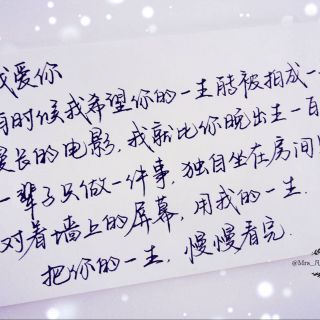 我爱你
有时候我希望你的一生能被拍成一
漫长的电影,我就比你晚出生一百
一辈子只做一件事,独自坐在房间
对着墙上的屏幕,用我的一生.
把你的一生,慢慢看完.
@Mrs_